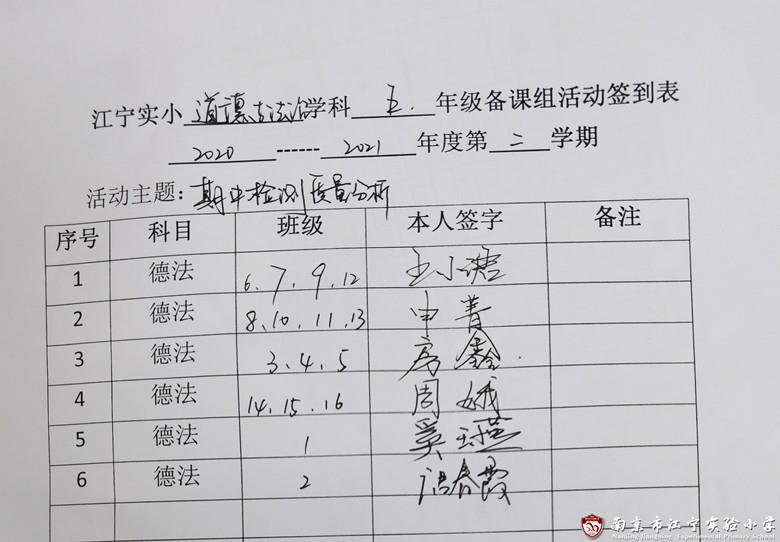 江宁实小道德与法治学科 五. 年级备课组活动签到表
2020------2021年度第二学期
活动主题：期中检测质量分析
序号 科目 班级 本人签字 备注
1 德法 6、7、9、12 王小
2 德法 8、10、11、13 申菁
3 德法 3、4、5 房鑫
4 德法 14、15、16 周娥
5 德法 1 奚
6 德法 2 春霞
南京市江宁实验小学
Nanjing Jiangning Experimental Primary School